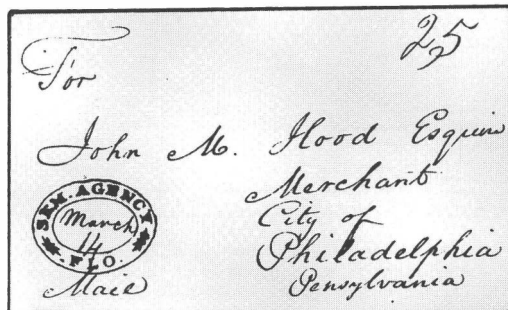 25
For
John M. Hood Esquire
Merchant
City of
Philadelphia
Pensylvania
SEM. AGENCY
March
14
FLO.
Mail